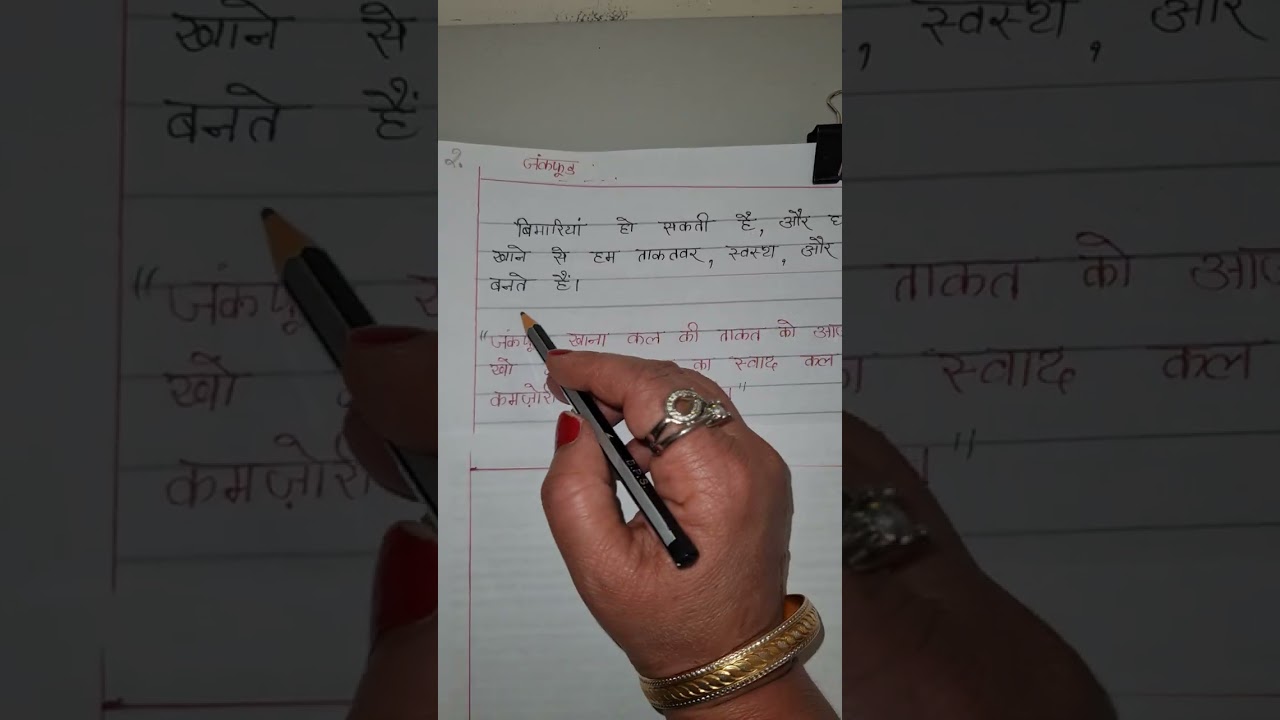 २. जंकफूड
बिमारियां हो सकती है, और
खाने से हम ताकतवर, स्वस्थ, और
बनते हैं।
"जंकफू खाना कल की ताकत को
खो का स्वाद कल
कमज़ोरी "